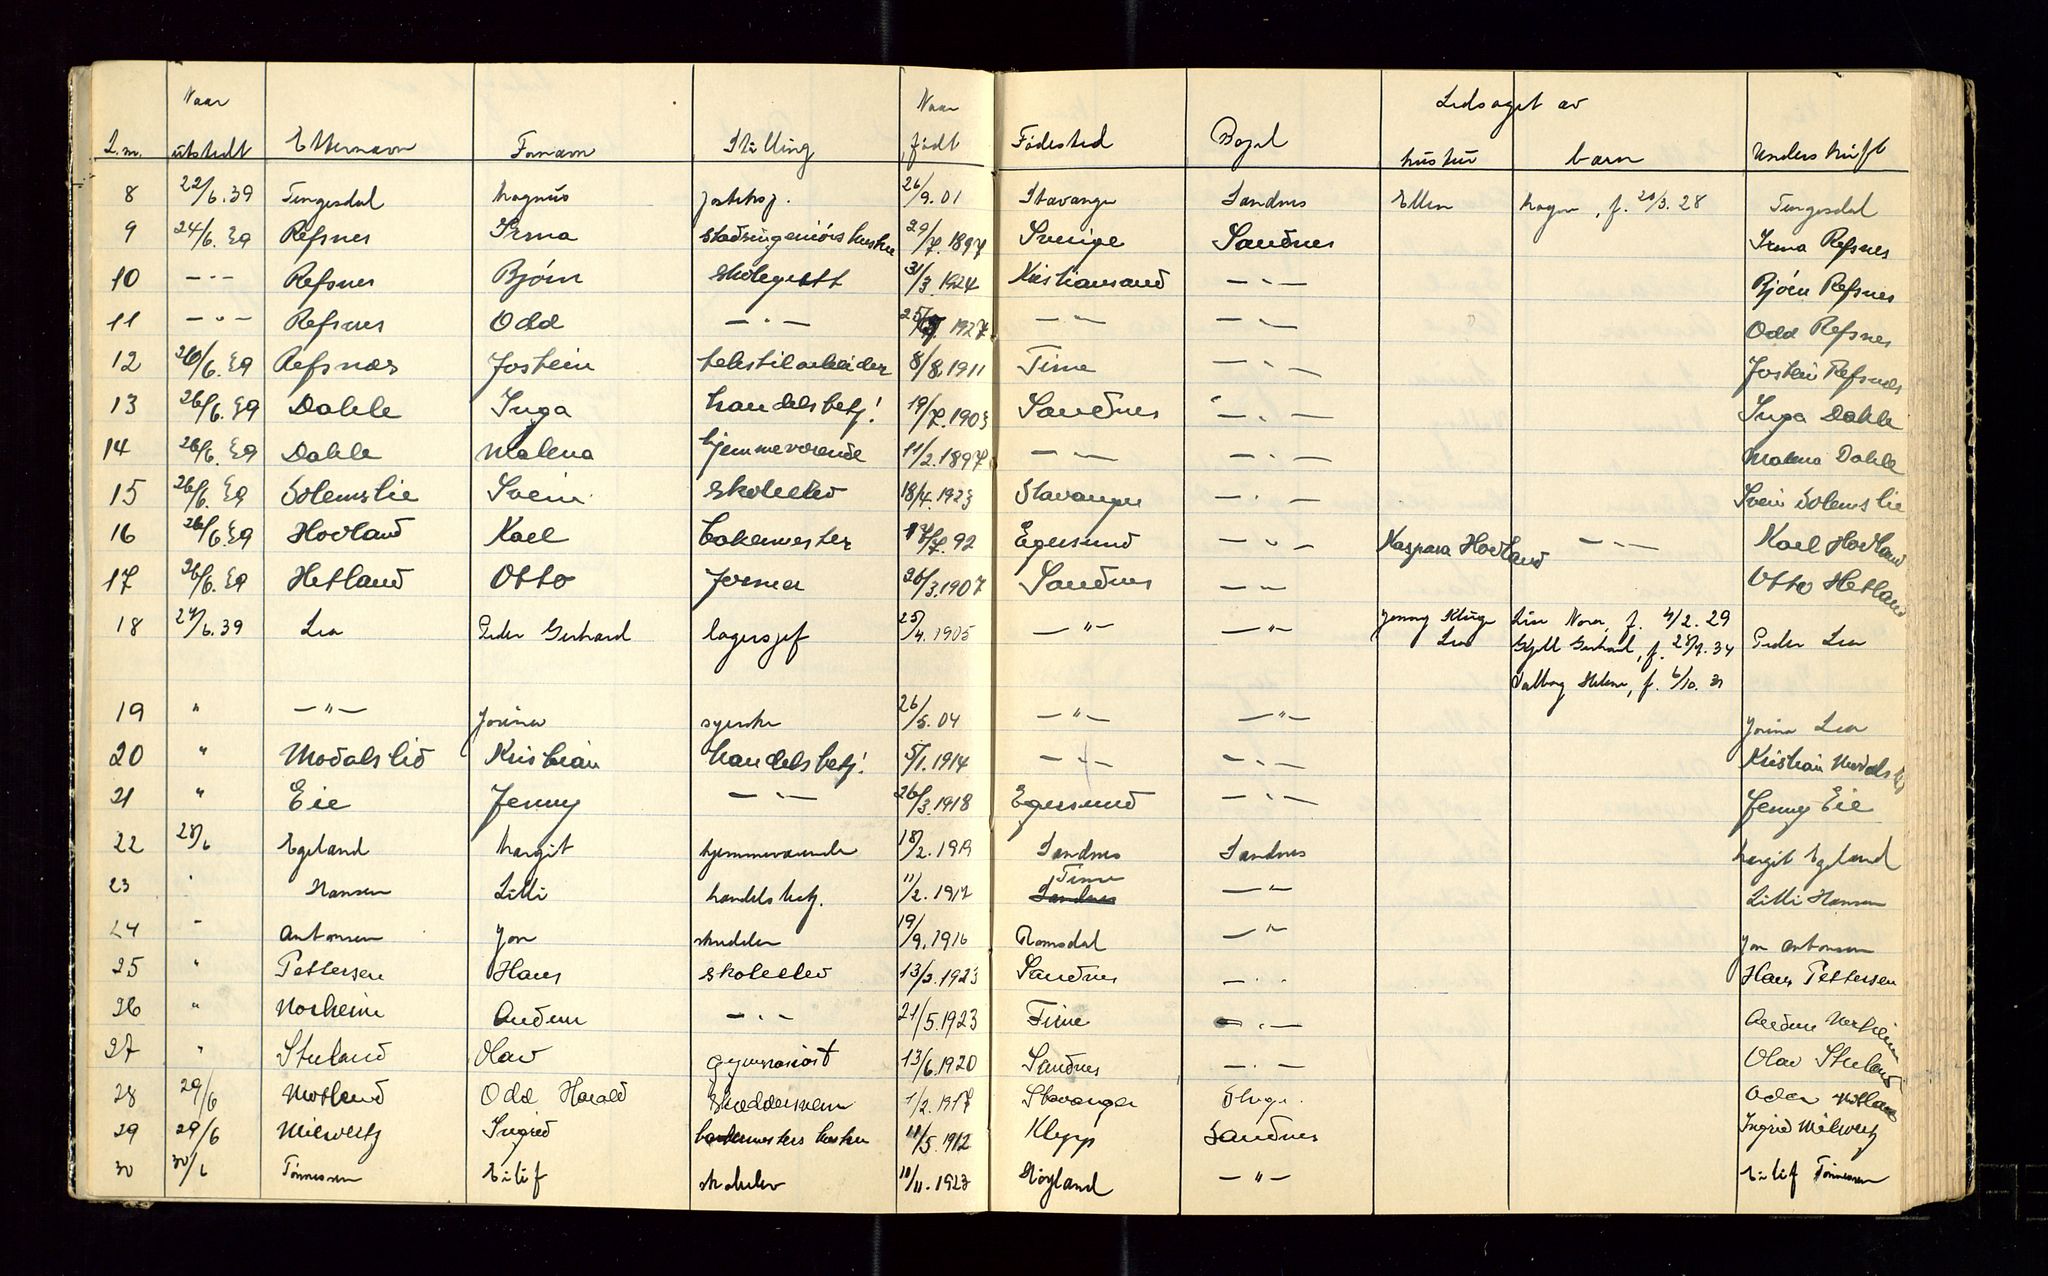 Naar Naar Ledsaget av
L.nr. utstedt Etternavn Fornavn Stilling født Fødested Bopel hustru barn Underskrift
8 22/6.39 Tengesdal Magnus posteksp. 26/9.01 Stavanger Sandnes Ellen Tengesdal
9 24/6.39 Refsnes Irma stadsingeniørs hustru 29/7.1897 Sverige Sandnes Irma Refsnes
10 — " — Refsnes Bjørn skolegutt 31/3.1924 Kristiansand — " — Bjørn Refsnes
11 — " — Refsnes Odd — " — 1927 — " — — " — Odd Refsnes
12 26/6.39 Refsnes Jostein tekstilarbeider 8/8.1911 Time — " — Jostein Refsnes
13 26/6.39 Dahle Inga handelsbetj. 19/7.1903 Sandnes — " — Inga Dahle
14 26/6.39 Dahle Malena hjemmeværende 11/2.1897 — " — — " — Malena Dahle
15 26/6.39 Solemslie Svein skoleelev 18/4.1923 Stavanger — " — Svein Solemslie
16 26/6.39 Hovland Karl bakermester 92 Egersund — " — Kaspara Hovland — " — Karl Hovland
17 26/6.39 Hetland Otto former 26/3.1907 Sandnes — " — Otto Hetland
18 27/6.39 Lea Peder Gerhard lagersjef 25/4.1905 — " — — " — Jenny Kluge Lise Nora, f. 4/2.29 Peder Lea
Lea Kjell Gerhard, f. 34
Valborg Helene, f. 6/10.31
19 " — " — Jorina syerske 26/5.04 — " — — " — Jorina Lea
20 " Modalslid Kristian handelsbetj. 5/1.1914 — " — — " — Kristian Modalslid
21 " Eie Jenny — " — 26/3.1918 Egersund — " — Jenny Eie
22 28/6 Egeland Margit hjemmeværende 18/2.1919 Sandnes Sandnes Margit Egeland
23 " Hansen Lilli handelsbetj. 11/2.1917 Time Sandnes — " Lilli Hansen
24 " Antonsen Jon 19/9.1916 Romsdal — " Jon Antonsen
25 " Pettersen Hans skoleelev 13/2.1923 Sandnes — " Hans Pettersen
26 " Norheim Audun — " — 21/5.1923 Time — " — Audun Norheim
27 " Stuland Olav gymnasiast 13/6.1920 Sandnes — " — Olav Stuland
28 29/6 Motland Odd Harald skreddersvenn 1/2.1917 Stavanger
29 29/6 Milvertz Ingrid bakermesters hustru 11/5.1912 Klepp Sandnes Ingrid Milvertz
30 30/6 Tønnessen Eilif skoleelev 10/11.1923 Høyland — " — Eilif Tønnessen